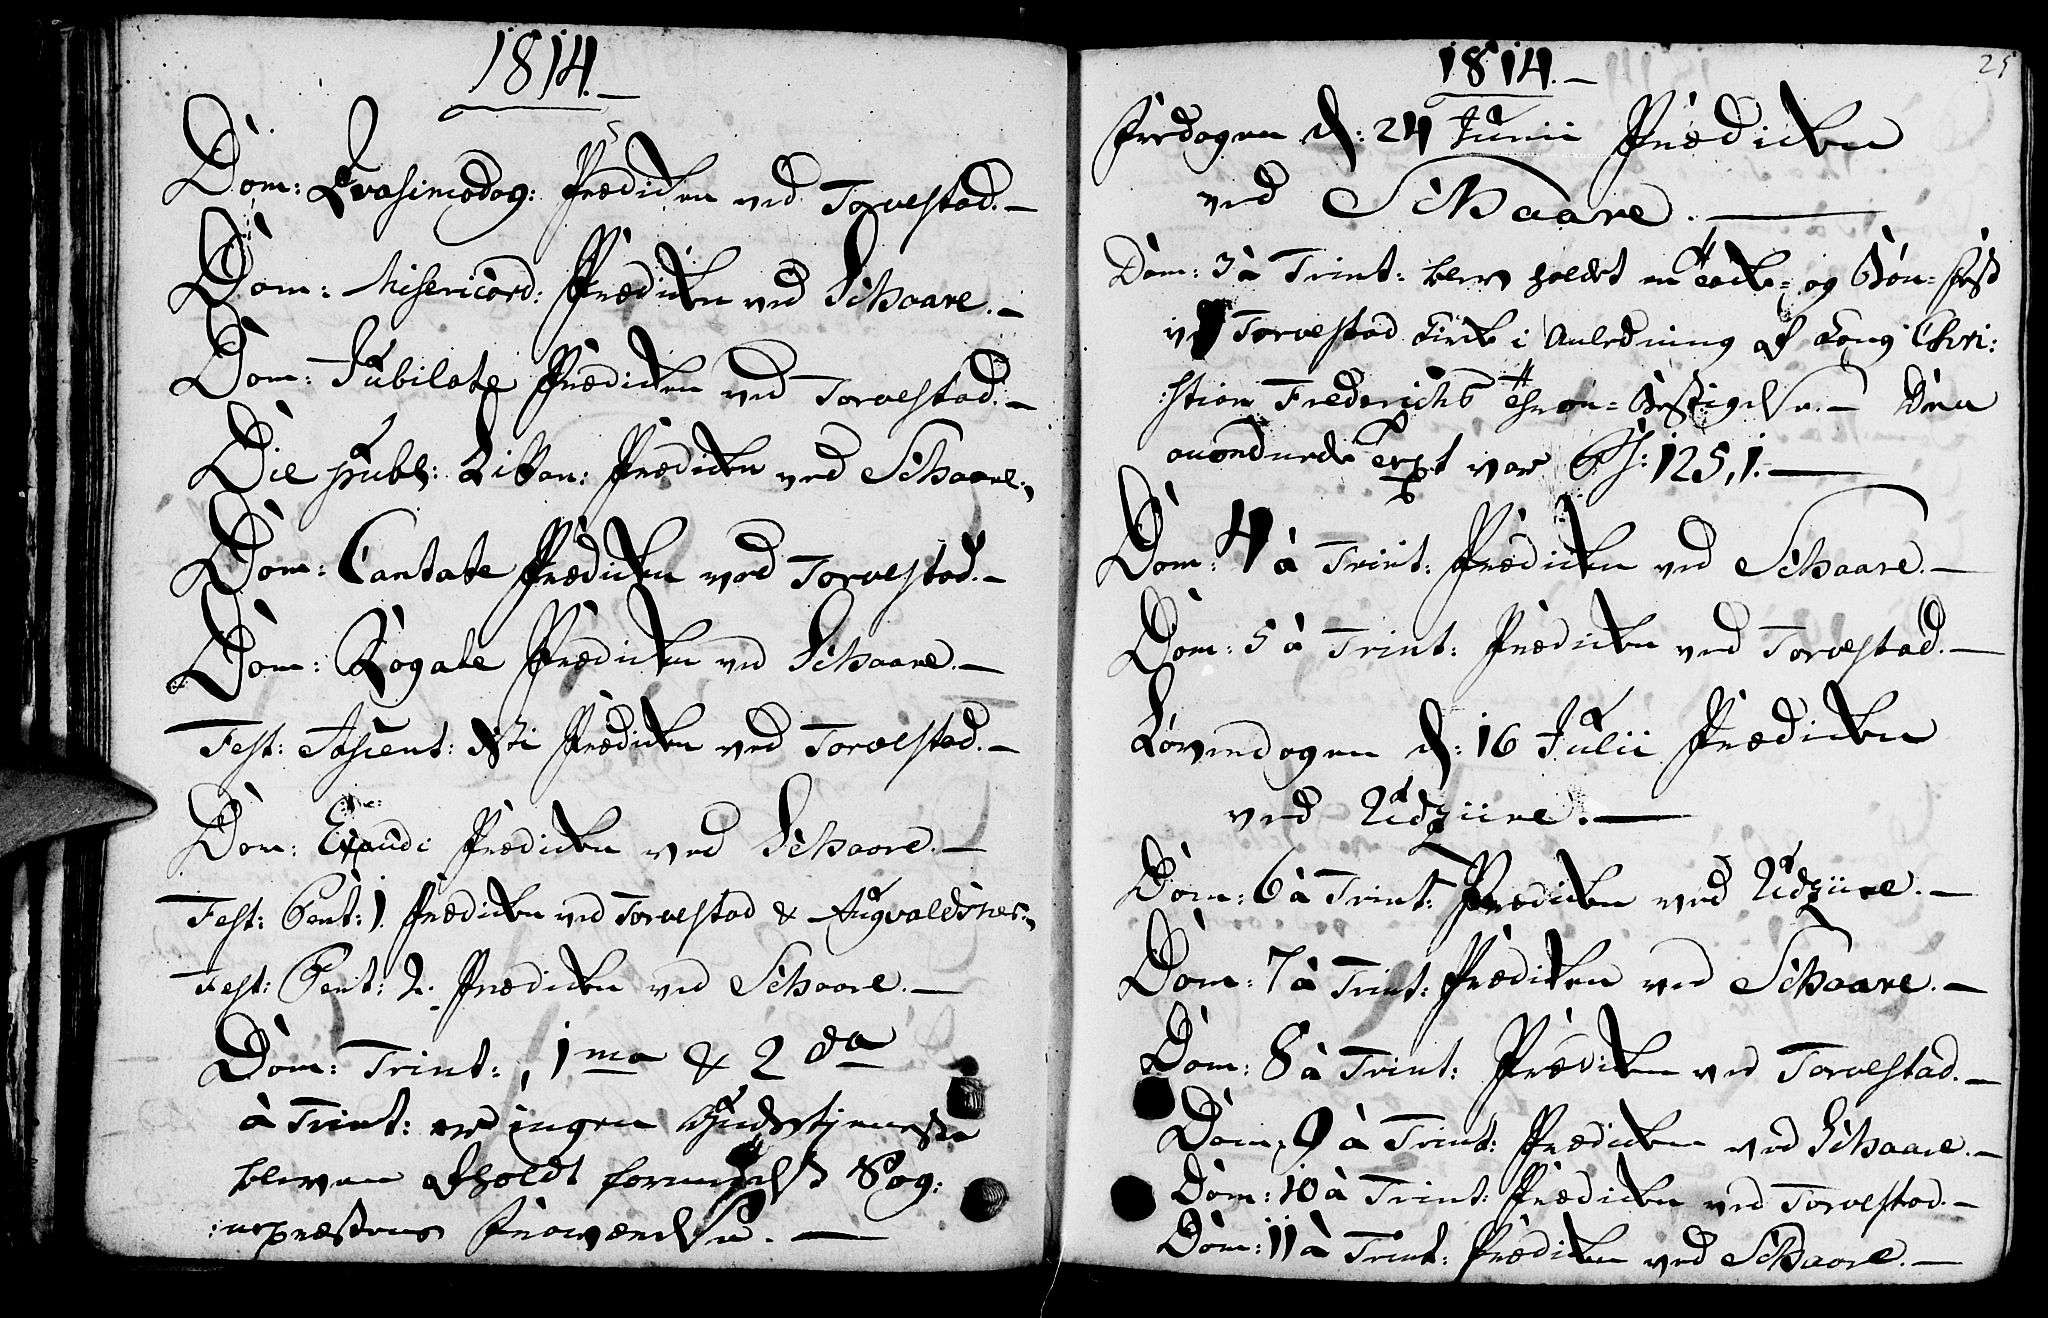 1814.
Dom: Qvasimodog: Prædicken ved Torvestad.
Dom: Misericord: Prædicken ved Schaare.
Dom: Jubilate Prædicken ved Torvestad.
Die publ: Littan: Prædicken ved Schaare.
Dom: Cantate Prædicken ved Torvestad.
Dom: Rogate Prædicken ved Schaare.
Fest: Ascent: Xsti Prædicken ved Torvestad.
Dom: Exaudi Prædicken ved Schaare.
Fest: Pent: 1. Prædicken ved Torvestad & Augvaldsnes.
Fest: Pent: 2. Prædicken ved Schaare.
Dom: Trint:, 1ma & 2da
à Trint: ingen Gudstjeneste
bleven afholdt formedelst Sog:
:nepræstens Fraværelse.
1814. 25
Fredagen d: 24 Junii Prædicken
ved Schaare.
Dom: 3 à Trint: blev holdt en Tacke= og Bøn=Fest
ved Torvestad Kirke i Anledning af Kong Chri:
:stian Frederichs Thron=Bestigelse. Den
anordnede Text var Ps: 125,1.
Dom: 4 à Trint: Prædicken ved Schaare.
Dom: 5 à Trint: Prædicken ved Torvestad.
Løverdagen d: 16 Julii Prædicken
ved Udziire.
Dom: 6 à Trint: Prædicken ved Udziire.
Dom: 7 à Trint: Prædicken ved Schaare.
Dom: 8 à Trint: Prædicken ved Torvestad.
Dom: 9 à Trint: Prædicken ved Schaare.
Dom: 10 à Trint: Prædicken ved Torvestad.
Dom: 11 à Trint: Prædicken ved Schaare.